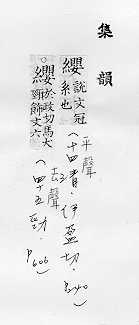 集韻
纓說文冠
系也
平聲
(十四清,伊盈切,P240)
纓於政切馬大
飾文六
去聲
(四十五勁,P606)